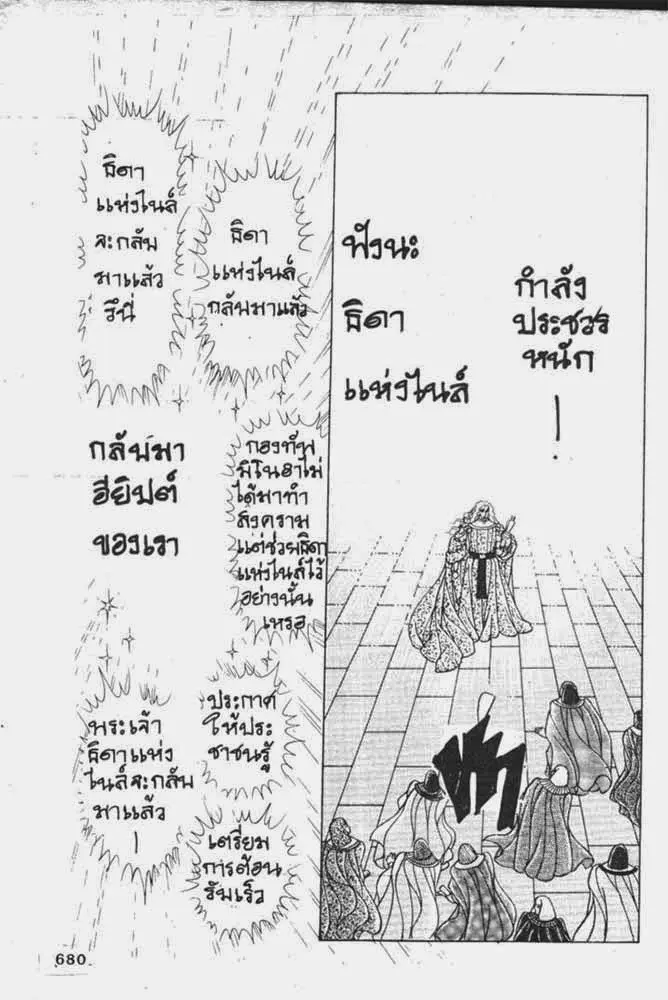 ฟังนะ
ธิดา
แห่งไนล์
กำลัง
ประชวร
หนัก
!
ธิดา
แห่งไนล์
จะกลับ
มาแล้ว
รึนี่
ธิดา
แห่งไนล์
กลับมาแล้ว
กลับมา
อียิปต์
ของเรา
กองทัพ
มิโนอาไม่
ได้มาทำ
สงคราม
แต่ช่วยธิดา
แห่งไนล์ไว้
อย่างนั้น
เหรอ
พระเจ้า
ธิดาแห่ง
ไนล์จะกลับ
มาแล้ว
!
ประกาศ
ให้ประ
ชาชนรู้
เตรียม
การต้อน
รับเร็ว
680